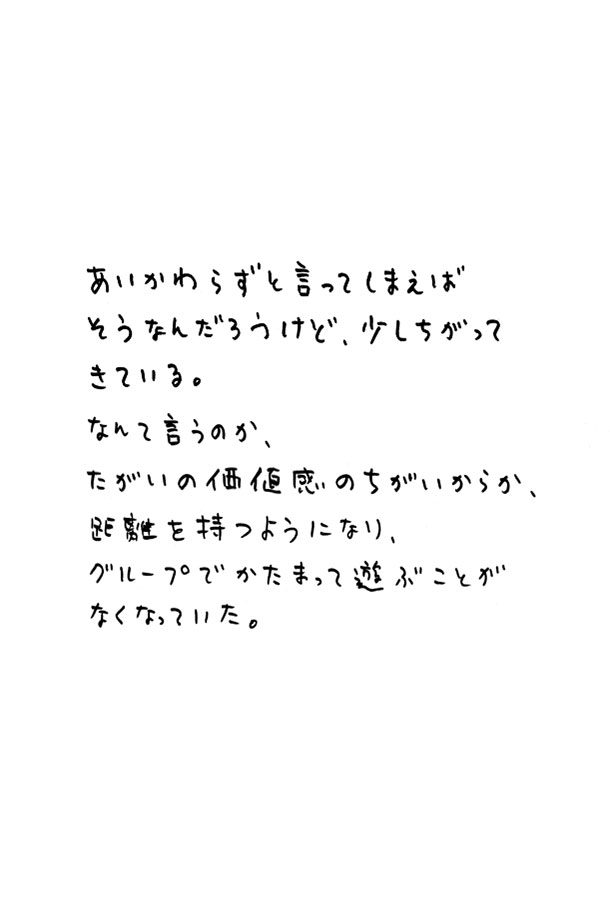 あいかわらずと言ってしまえば
そうなんだろうけど、少しちがって
きている。
なんて言うのか、
たがいの価値感のちがいからか、
距離を持つようになり、
グループでかたまって遊ぶことが
なくなっていた。